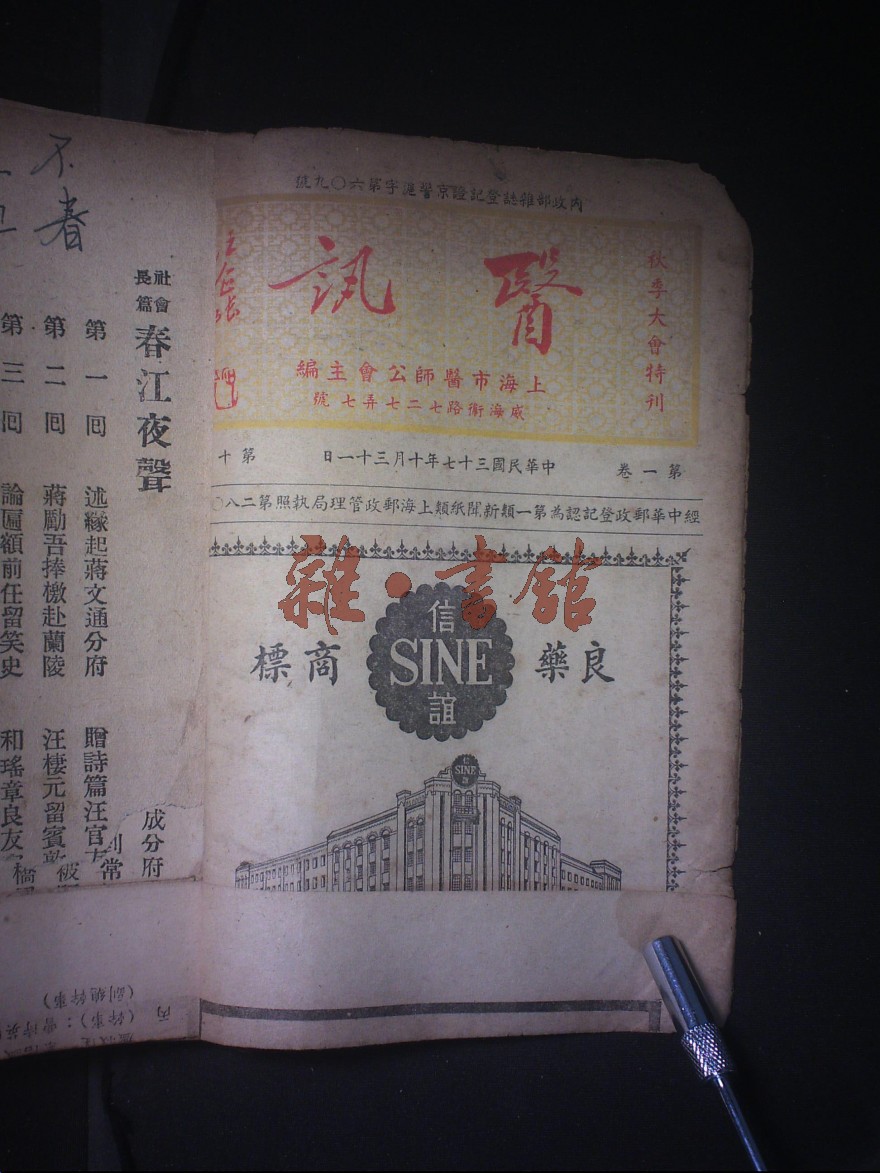 內政部雜誌登記證京警滬字第六〇九號
秋季大會特刊
醫訊
上海市醫師公會主編
威海衛路七二七弄七號
第一卷
中華民國三十七年十月三十一日
第十
經中華郵政登記認為第一類新聞紙類上海郵政管理局執照第二八〇
雜·書館
良藥
信
SINE
誼
商標
信
SINE
誼
不
春
社會長篇
春江夜聲
成分府
第一回 述緣起蔣文通分府 贈詩篇汪官
第二回 蔣勵吾捧檄赴蘭陵 汪棲元留賓
第三回 論匾額前任留笑史 和瑤章良友
到常
丙
(副總幹事)
(幹事):